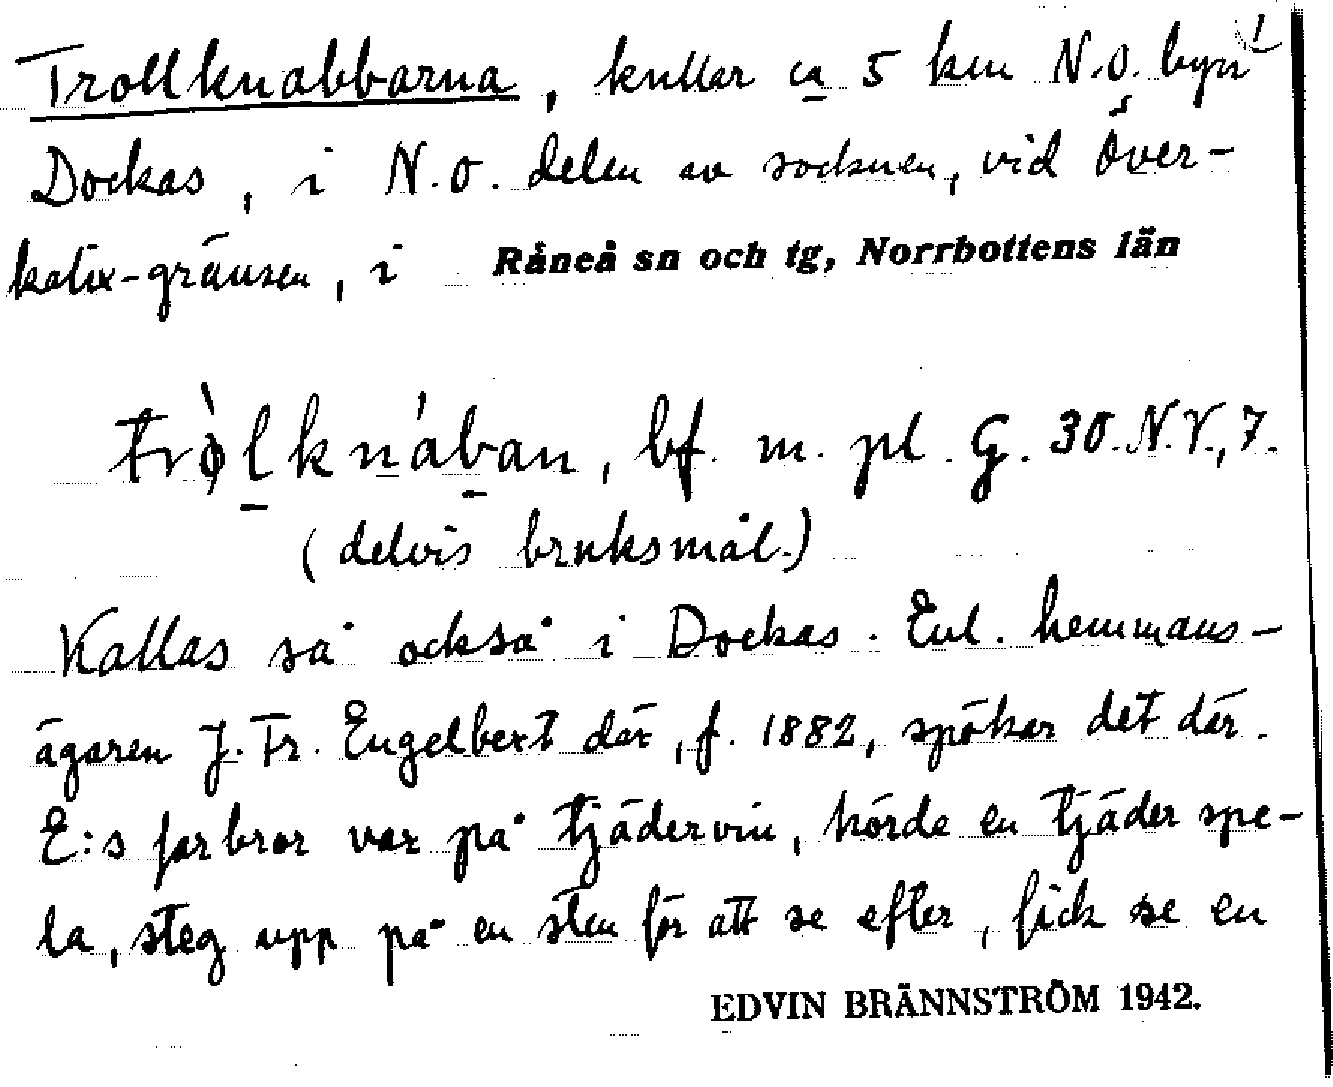 Trollknabbarna, kullar ca 5 km N.O. byn 1
Dockas, i N.O. delen av socknen, vid Över-
kalix-gränsen, i Råneå sn och tg, Norrbottens län
trò̩lknában, bf. m. pl. G. 30.N.V., 7.
(delvis bruksmål.)
Kallas så också i Dockas. Enl. hemmans-
ägaren J. Fr. Engelbert där, f. 1882, spökar det där.
E:s farbror var på tjädervin, hörde en tjäder spe-
la, steg upp på en sten för att se efter, fick se en
EDVIN BRÄNNSTRÖM 1942.